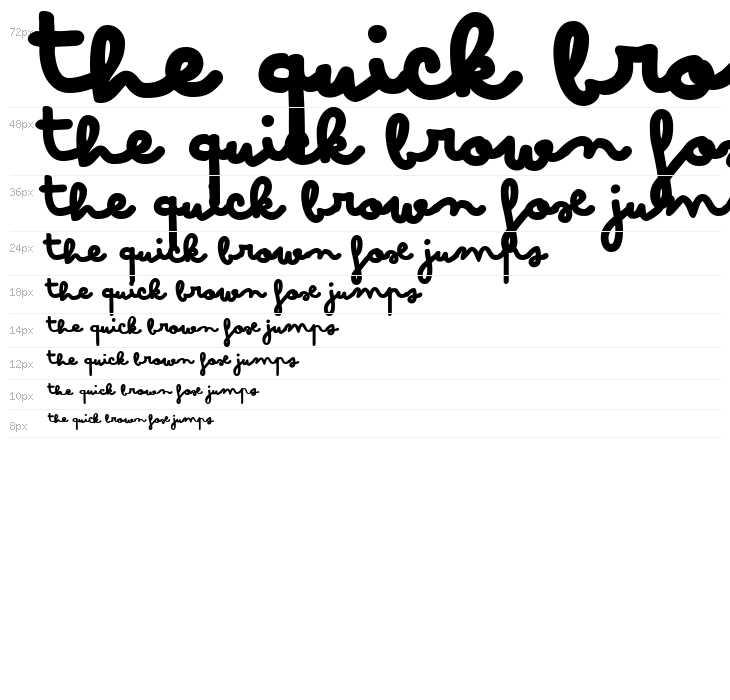 72px the quick bro
48px the quick brown fox
36px the quick brown fox jum
24px the quick brown fox jumps
18px the quick brown fox jumps
14px the quick brown fox jumps
12px the quick brown fox jumps
10px the quick brown fox jumps
8px the quick brown fox jumps